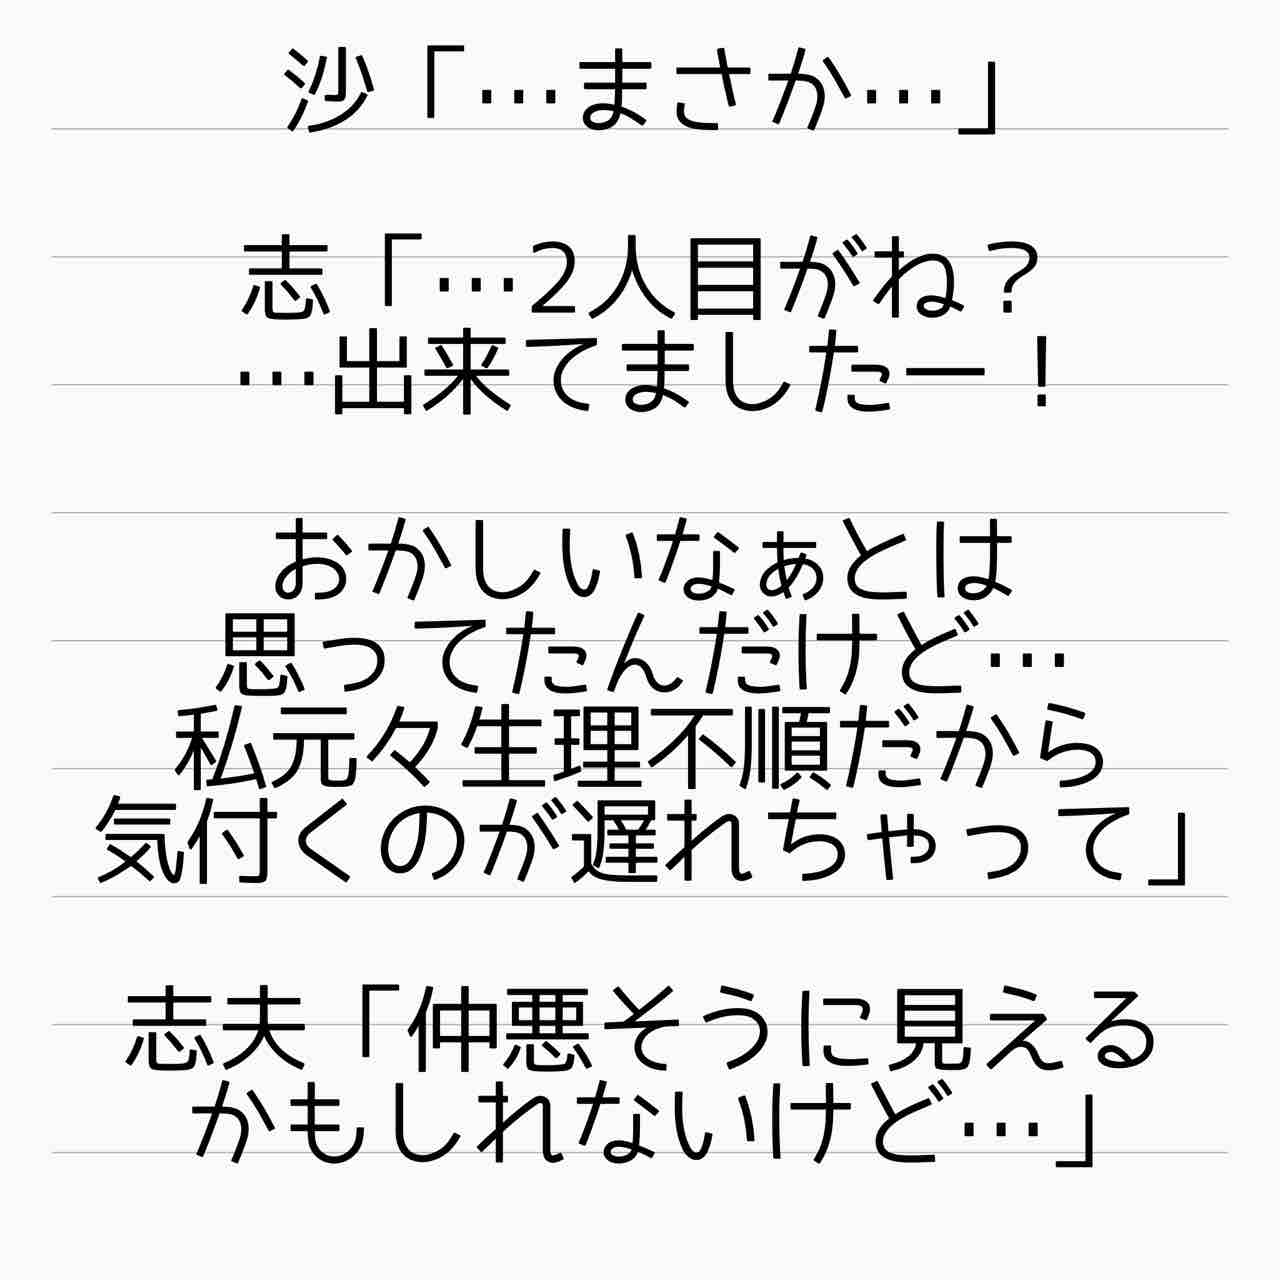 沙「…まさか…」
志「…2人目がね？
…出来てましたー！
おかしいなぁとは
思ってたんだけど…
私元々生理不順だから
気付くのが遅れちゃって」
志夫「仲悪そうに見える
かもしれないけど…」